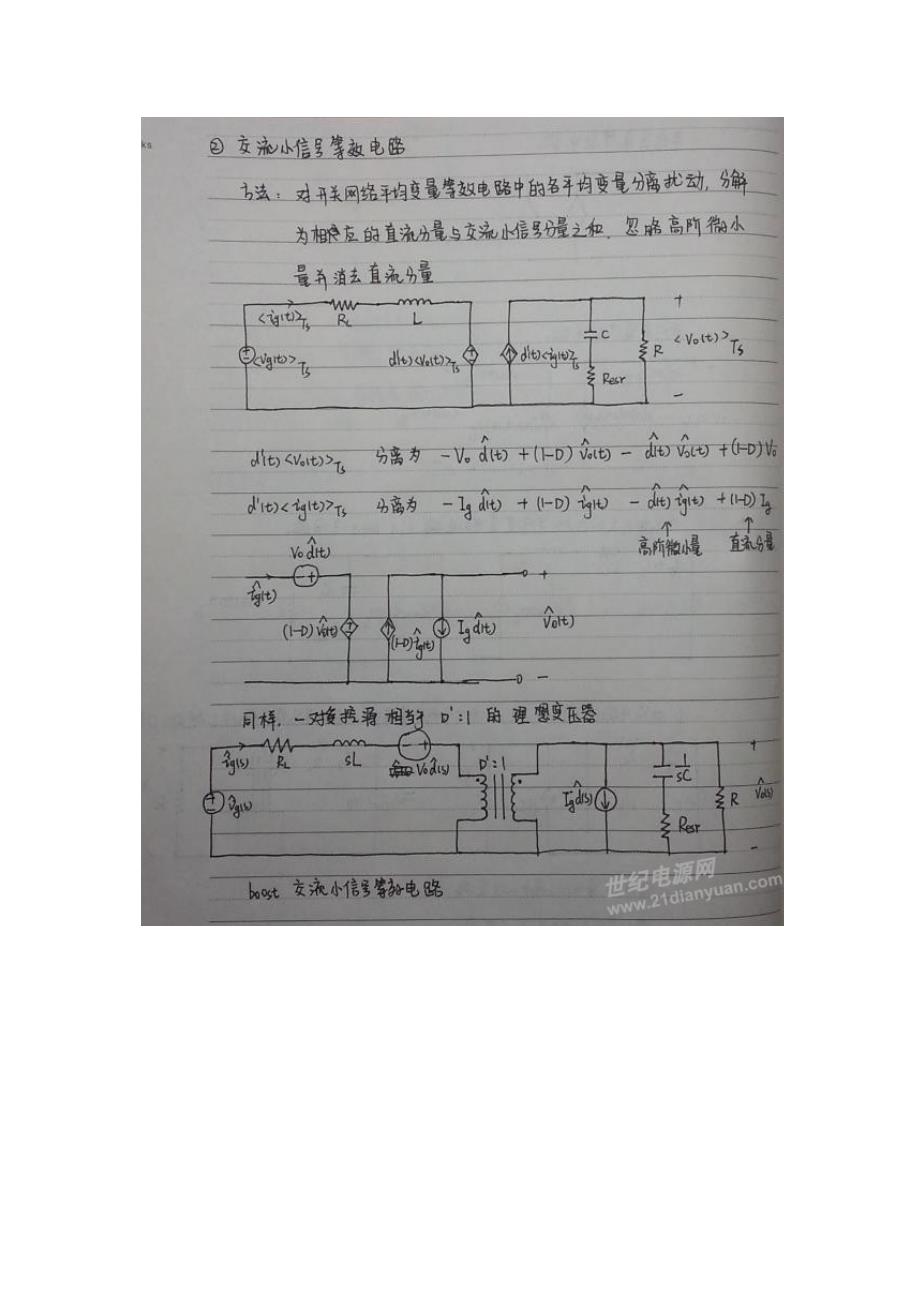 ks
② 交流小信号等效电路
方法：对开关网络平均变量等效电路中的各平均变量分离扰动，分解
为相应的直流分量与交流小信号分量之和，忽略高阶微小
量并消去直流分量
<ig(t)>Ts RL L
<vg(t)>Ts d'(t)<vo(t)>Ts d'(t)<ig(t)>Ts C Resr R + <vo(t)>Ts −
d'(t)<vo(t)>Ts 分离为 −Vo d̂(t) + (1−D) v̂o(t) − d̂(t) v̂o(t) + (1−D)Vo
d'(t)<ig(t)>Ts 分离为 −Ig d̂(t) + (1−D) îg(t) − d̂(t) îg(t) + (1−D) Ig
↑ ↑
高阶微小量 直流分量
Vo d̂(t)
− +
îg(t)
(1−D) v̂o(t) (1−D) îg(t) Ig d̂(t) + v̂o(t) −
同样，一对受控源相当于 D':1 的理想变压器
îg(s) RL sL − + Vo d̂(s) D':1 1/sC +
v̂g(s) Ig d̂(s) Resr R v̂o(s) −
boost 交流小信号等效电路
世纪电源网
www.21dianyuan.com